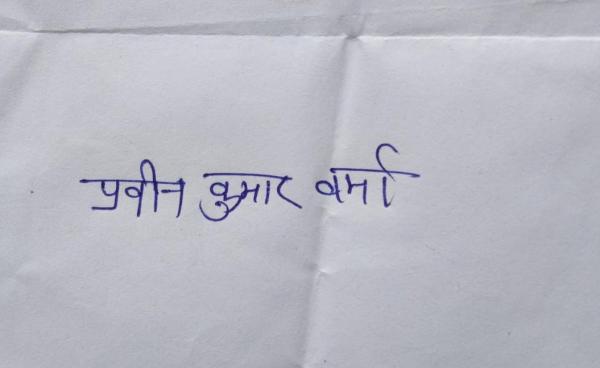 प्रवीन कुमार वर्मा